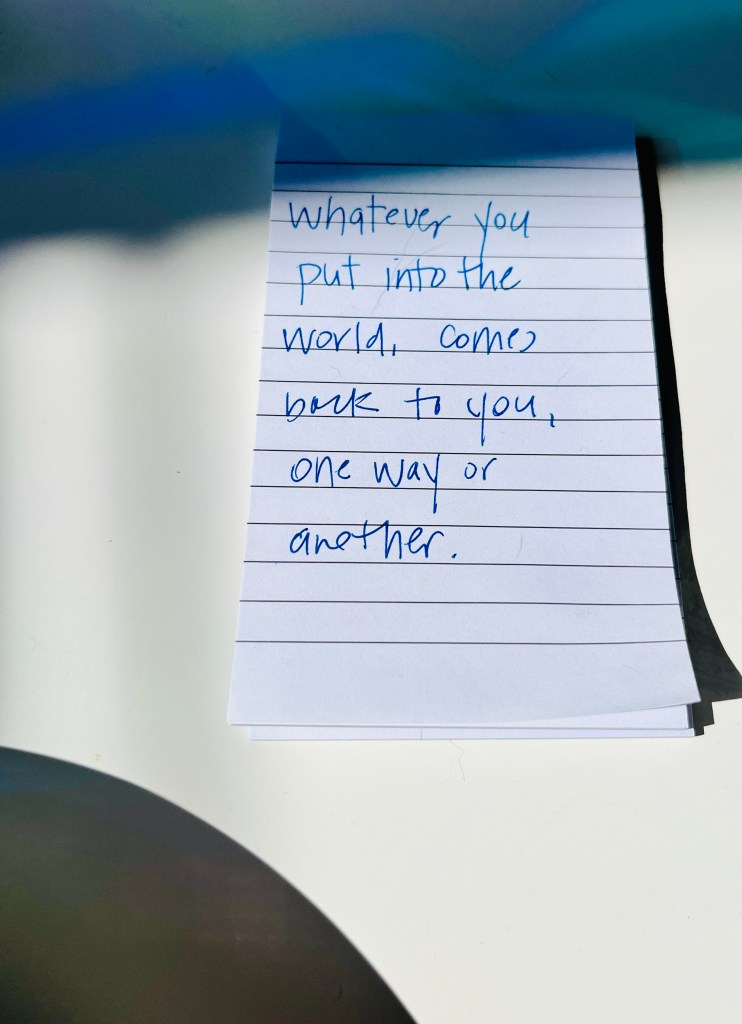 whatever you
put into the
world, comes
back to you,
one way or
another.